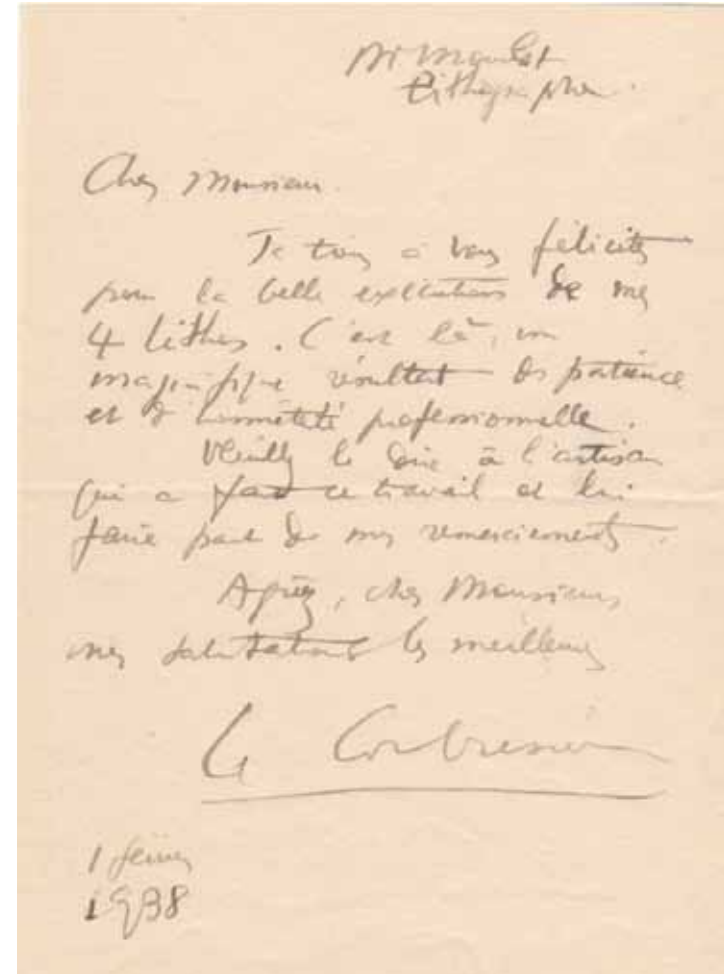 Mr Mourlot
Lithographe.
Cher Monsieur.
Je tiens à vous féliciter
pour la belle exécution de mes
4 lithos. C'est là, un
magnifique résultat de patience
et d'honnêteté professionnelle.
Veuillez le dire à l'artisan
qui a fait ce travail et lui
faire part de mes remerciements.
Agréez, cher Monsieur
mes salutations les meilleures
Le Corbusier
1 février
1938